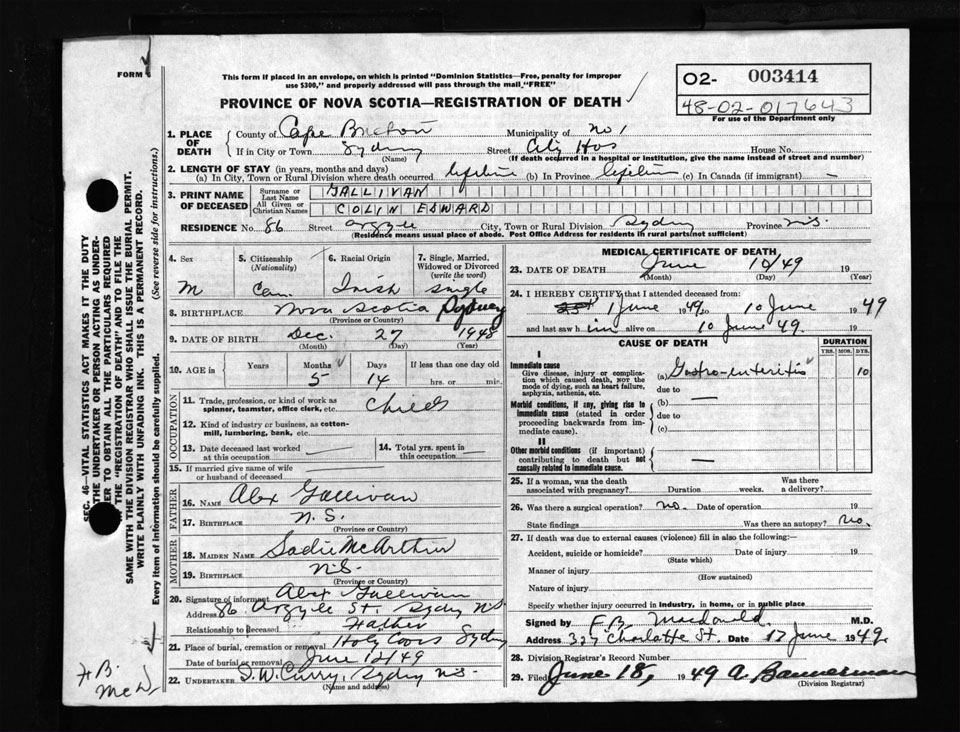 FORM
This form if placed in an envelope, on which is printed "Dominion Statistics—Free, penalty for improper
use $300," and properly addressed will pass through the mail "FREE"
PROVINCE OF NOVA SCOTIA—REGISTRATION OF DEATH
O2- 003414
48-02-017643
For use of the Department only
SEC. 46—VITAL STATISTICS ACT MAKES IT THE DUTY
THE UNDERTAKER OR PERSON ACTING AS UNDER-
ER TO OBTAIN ALL THE PARTICULARS REQUIRED
THE "REGISTRATION OF DEATH" AND TO FILE THE
SAME WITH THE DIVISION REGISTRAR WHO SHALL ISSUE THE BURIAL PERMIT.
WRITE PLAINLY WITH UNFADING INK. THIS IS A PERMANENT RECORD.
Every item of information should be carefully supplied. (See reverse side for instructions.)
1. PLACE OF DEATH County of Cape Breton Municipality of No 1
If in City or Town Sydney (Name) Street City Hos House No.
(If death occurred in a hospital or institution, give the name instead of street and number)
2. LENGTH OF STAY (in years, months and days)
(a) In City, Town or Rural Division where death occurred lifetime (b) In Province lifetime (c) In Canada (if immigrant) —
3. PRINT NAME OF DECEASED Surname or Last Name GALLIVAN
All Given or Christian Names COLIN EDWARD
RESIDENCE No 86 Street Argyle City, Town or Rural Division Sydney Province N.S.
(Residence means usual place of abode. Post Office Address for residents in rural parts not sufficient)
4. Sex M
5. Citizenship (Nationality) Can.
6. Racial Origin Irish
7. Single, Married, Widowed or Divorced (write the word) single
8. BIRTHPLACE Nova Scotia Sydney
(Province or Country)
9. DATE OF BIRTH Dec. 27 1948
(Month) (Day) (Year)
10. AGE in Years Months 5 Days 14 If less than one day old hrs. or min.
OCCUPATION
11. Trade, profession, or kind of work as spinner, teamster, office clerk, etc. Child
12. Kind of industry or business, as cotton-mill, lumbering, bank, etc.
13. Date deceased last worked at this occupation —
14. Total yrs. spent in this occupation —
15. If married give name of wife or husband of deceased
FATHER
16. NAME Alex Gallivan
17. BIRTHPLACE N.S.
(Province or Country)
MOTHER
18. MAIDEN NAME Sadie McArthur
19. BIRTHPLACE N.S.
(Province or Country)
20. Signature of informant Alex Gallivan
Address 86 Argyle St. Sydney N.S.
Relationship to deceased Father
21. Place of burial, cremation or removal Holy Cross Sydney
Date of burial or removal June 12/49
22. UNDERTAKER T. W. Curry, Sydney N.S.
(Name and address)
F B.
McD
MEDICAL CERTIFICATE OF DEATH
23. DATE OF DEATH June 10/49 19
(Month) (Day) (Year)
24. I HEREBY CERTIFY that I attended deceased from:
1 June 1949 to 10 June 1949
and last saw him alive on 10 June 49. 19
CAUSE OF DEATH
DURATION
YRS. MOS. DYS.
I
Immediate cause
Give disease, injury or complication which caused death, not the mode of dying, such as heart failure, asphyxia, asthenia, etc.
(a) Gastro-enteritis 10
due to
Morbid conditions, if any, giving rise to immediate cause (stated in order proceeding backwards from immediate cause).
(b) —
due to
(c)
II
Other morbid conditions (if important) contributing to death but not causally related to immediate cause.
—
25. If a woman, was the death associated with pregnancy? Duration weeks. Was there a delivery?
26. Was there a surgical operation? no. Date of operation 19
State findings Was there an autopsy? No.
27. If death was due to external causes (violence) fill in also the following:—
Accident, suicide or homicide? Date of injury 19
(State which)
Manner of injury
(How sustained)
Nature of injury
Specify whether injury occurred in industry, in home, or in public place
Signed by F. B. Macdonald M.D.
Address 327 Charlotte St. Date 17 June 1949
28. Division Registrar's Record Number
29. Filed June 18, 1949 A. Bannerman
(Division Registrar)